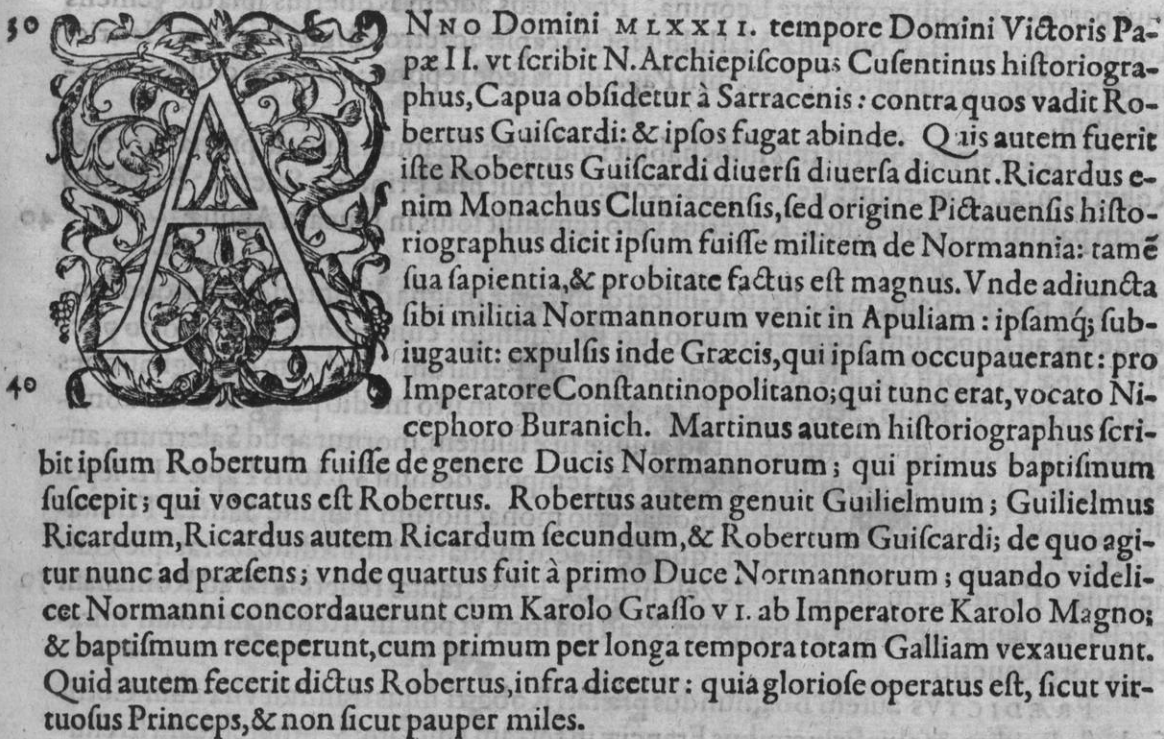 30 ANNO Domini MLXXII. tempore Domini Victoris Pa-
pæ II. vt ſcribit N. Archiepiſcopus Cuſentinus hiſtoriogra-
phus, Capua obſidetur à Sarracenis: contra quos vadit Ro-
bertus Guiſcardi: & ipſos fugat abinde. Quis autem fuerit
iſte Robertus Guiſcardi diuerſi diuerſa dicunt. Ricardus e-
nim Monachus Cluniacenſis, ſed origine Pictauenſis hiſto-
riographus dicit ipſum fuiſſe militem de Normannia: tamẽ
ſua ſapientia, & probitate factus eſt magnus. Vnde adiuncta
ſibi militia Normannorum venit in Apuliam: ipſamq́; ſub-
iugauit: expulſis inde Græcis, qui ipſam occupauerant: pro
40 Imperatore Conſtantinopolitano; qui tunc erat, vocato Ni-
cephoro Buranich. Martinus autem hiſtoriographus ſcri-
bit ipſum Robertum fuiſſe de genere Ducis Normannorum; qui primus baptiſmum
ſuſcepit; qui vocatus eſt Robertus. Robertus autem genuit Guilielmum; Guilielmus
Ricardum, Ricardus autem Ricardum ſecundum, & Robertum Guiſcardi; de quo agi-
tur nunc ad præſens; vnde quartus fuit à primo Duce Normannorum; quando videli-
cet Normanni concordauerunt cum Karolo Graſſo VI. ab Imperatore Karolo Magno;
& baptiſmum receperunt, cum primum per longa tempora totam Galliam vexauerunt.
Quid autem fecerit dictus Robertus, infra dicetur: quia glorioſe operatus eſt, ſicut vir-
tuoſus Princeps, & non ſicut pauper miles.